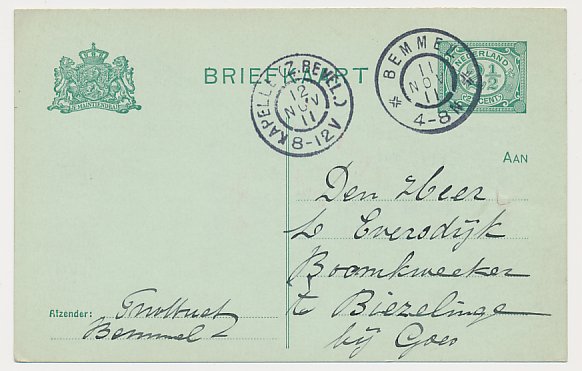 BRIEFKAART
JE MAINTIENDRAI
KAPELLE (Z. BEVEL.)
12
NOV
11
8-12V
BEMMEL
11
NOV
11
4-8N
NEDERLAND
2½
CENT
AAN
Den Heer
Eversdijk
Boomkweeker
te Biezelinge
bij Goes
Afzender:
Bemmel